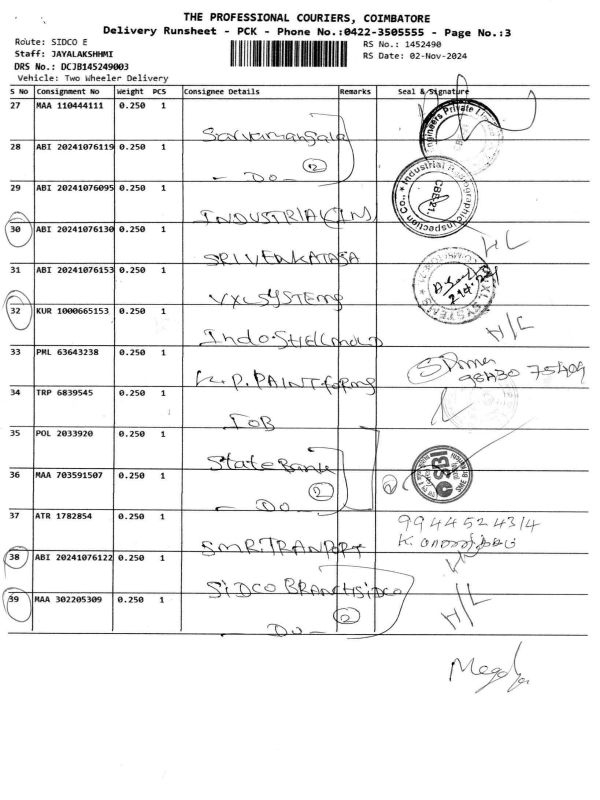 THE PROFESSIONAL COURIERS, COIMBATORE
Delivery Runsheet - PCK - Phone No.:0422-3505555 - Page No.:3
Route: SIDCO E
RS No.: 1452490
Staff: JAYALAKSHHMI
RS Date: 02-Nov-2024
DRS No.: DCJB145249003
Vehicle: Two Wheeler Delivery
S No Consignment No Weight PCS Consignee Details Remarks Seal & Signature
27 MAA 110444111 0.250 1 Sarvamangala
28 ABI 20241076119 0.250 1 - DO - 2
29 ABI 20241076095 0.250 1
30 ABI 20241076130 0.250 1 SRIVENKATASA H/L
31 ABI 20241076153 0.250 1 VXL SYSTEMS
32 KUR 1000665153 0.250 1 H/L
33 PML 63643238 0.250 1 98430 75409
34 TRP 6839545 0.250 1 IOB
35 POL 2033920 0.250 1 State Bank
36 MAA 703591507 0.250 1 - DO - 2 2 SBI
37 ATR 1782854 0.250 1 SMRTRANPORT 9944524314
38 ABI 20241076122 0.250 1 SIDCO BRANCH SIDCO H/L
39 MAA 302205309 0.250 1 - DO - 2 H/L